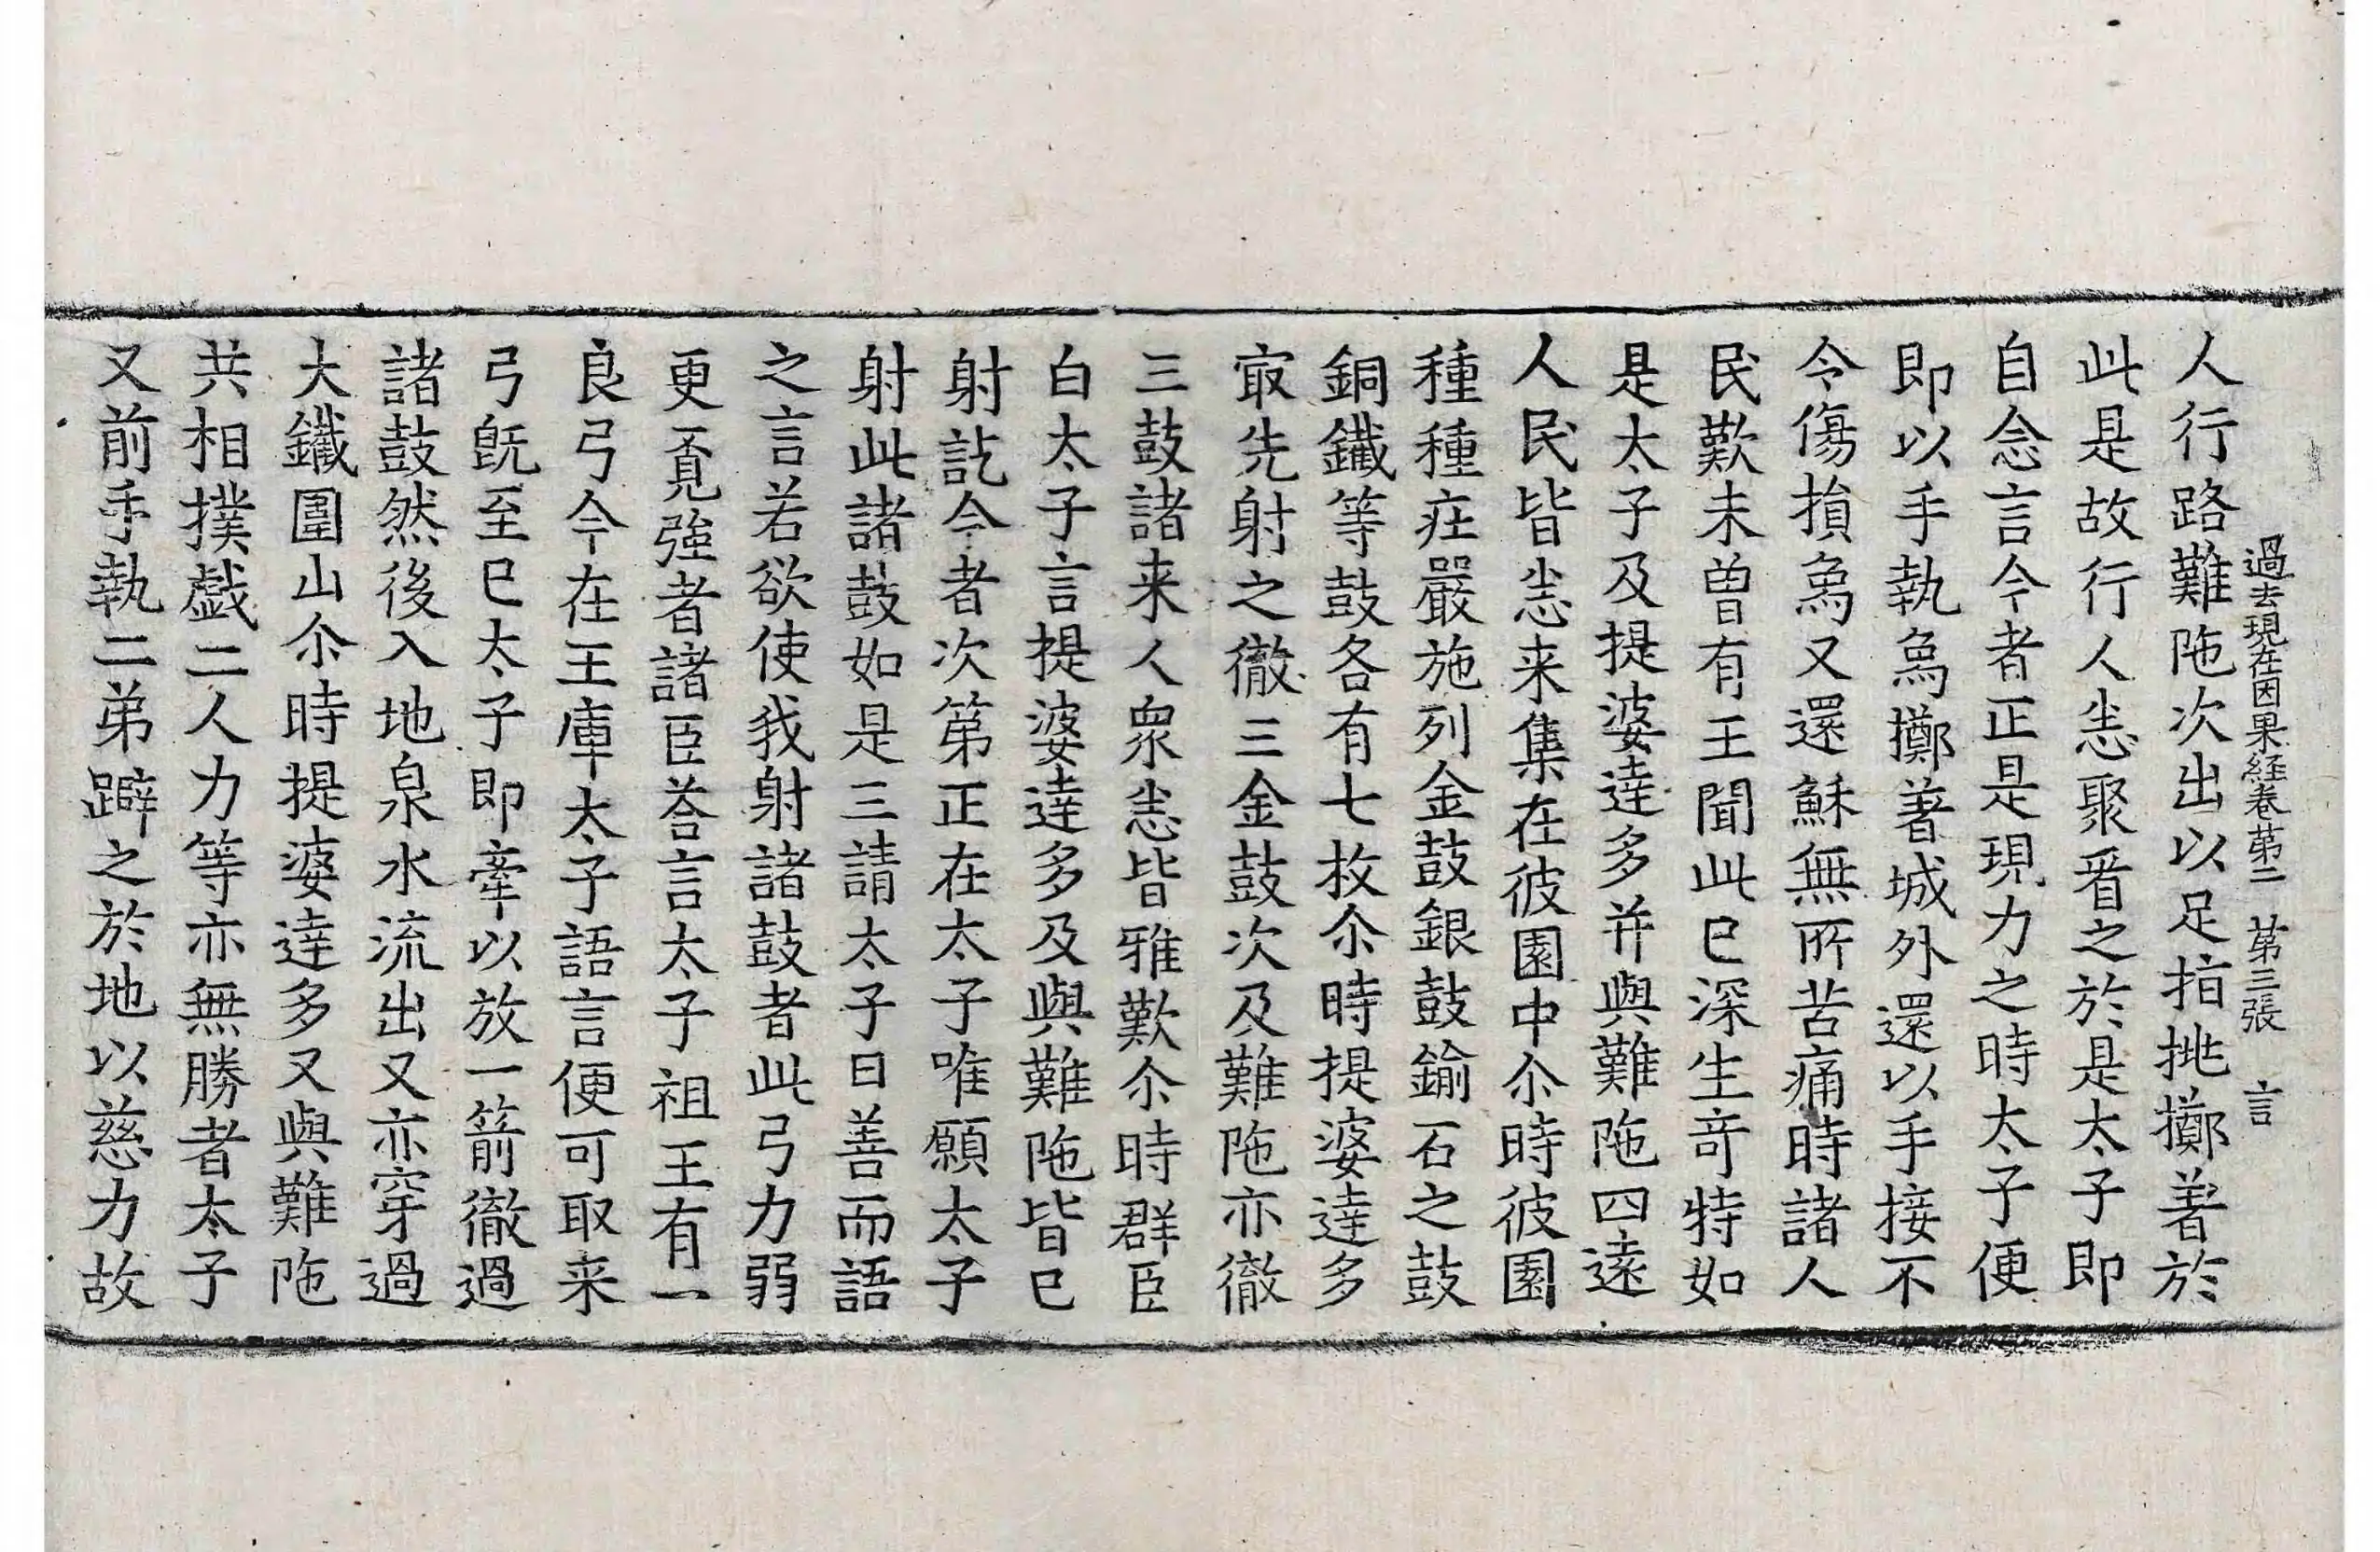 過去現在因果経卷苐二 苐三張 言
人行路難陁次出以足指挑擲著於
此是故行人悉聚㸔之於是太子即
自念言今者正是現力之時太子便
即以手執烏擲著城外還以手接不
令傷損烏又還穌無所苦痛時諸人
民歎未曽有王聞此已深生竒特如
是太子及提婆達多并與難陁四遠
人民皆悉来集在彼園中尒時彼園
種種莊嚴施列金鼓銀鼓鍮石之鼓
銅鐵等鼓各有七枚尒時提婆達多
㝡先射之徹三金鼓次及難陁亦徹
三鼓諸来人衆悉皆雅歎尒時群臣
白太子言提婆達多及與難陁皆已
射訖今者次第正在太子唯願太子
射此諸鼓如是三請太子曰善而語
之言若欲使我射諸鼓者此弓力弱
更覔強者諸臣荅言太子祖王有一
良弓今在王庫太子語言便可取来
弓旣至已太子即牽以放一箭徹過
諸鼓然後入地泉水流出又亦穿過
大鐵圍山尒時提婆達多又與難陁
共相撲戱二人力等亦無勝者太子
又前手執二弟躃之於地以慈力故